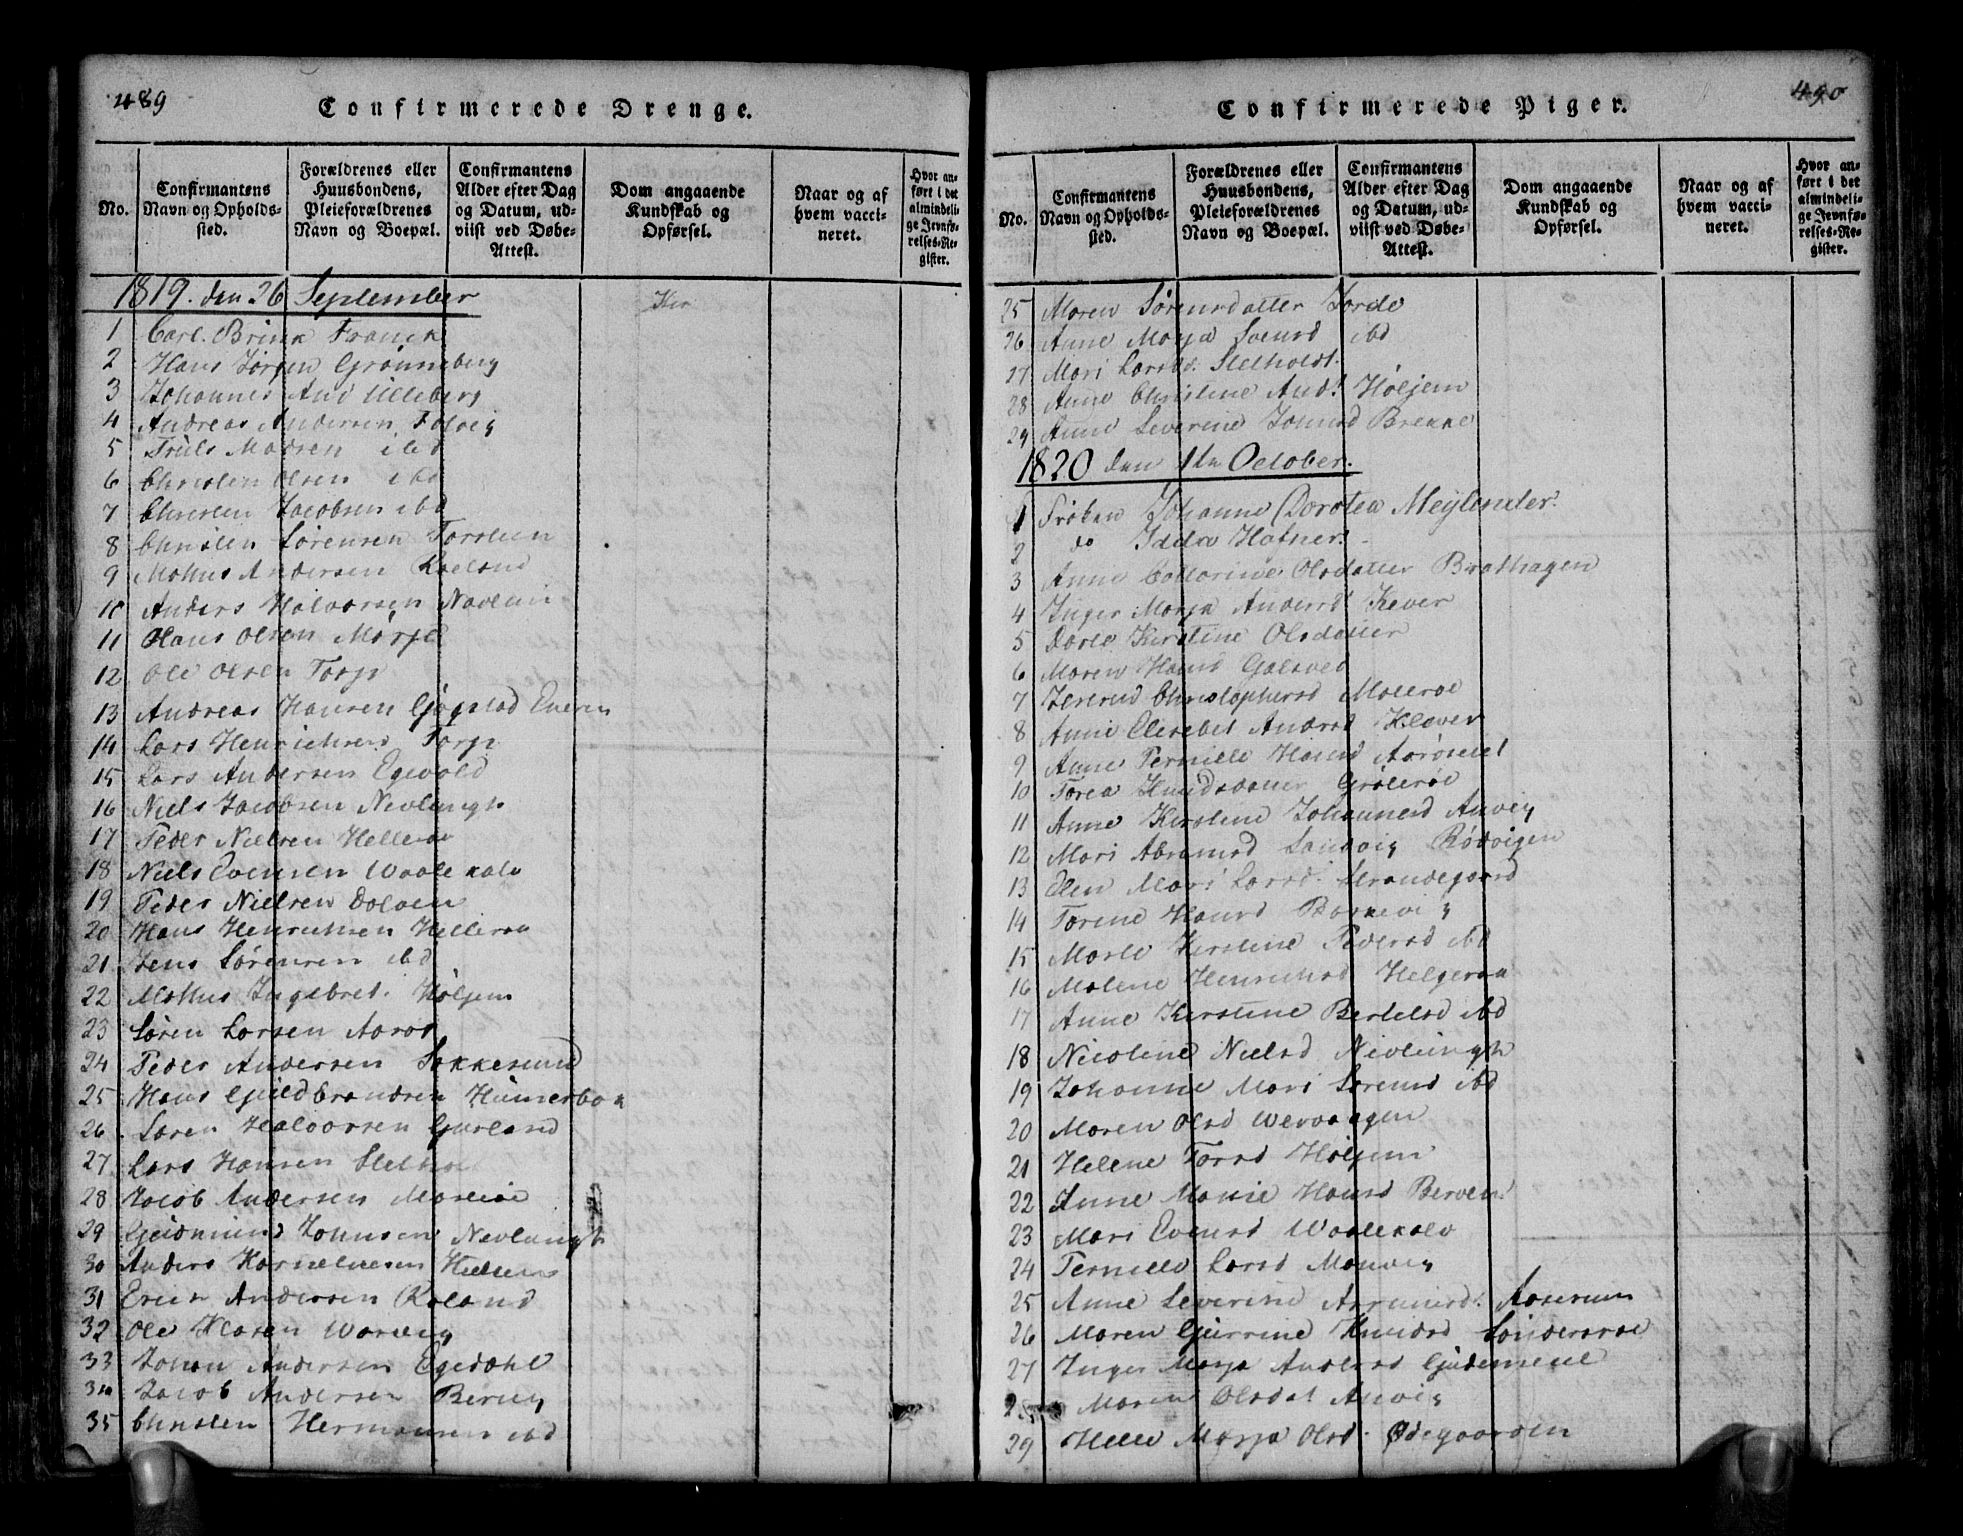 489
Confirmerede Drenge.
No.
Confirmantens Navn og Opholds-sted.
Forældrenes eller Huusbondens, Pleieforældrenes Navn og Boepæl.
Confirmantens Alder efter Dag og Datum, ud-viist ved Døbe-Attest.
Dom angaaende Kundskab og Opførsel.
Naar og af hvem vacci-neret.
Hvor an-ført i det almindeli-ge Jevnfø-relses-Re-gister.
1819. den 26 September
1 Carl. Brink Franck
2 Hans Jørgen Grønneberg
3 Johannes And Lilleberg
4 Andreas Andersen Foldvig
5 Truls Madsen ibd
6 Christen Olsen ibd
7 Christen Jacobsen ibd
8 Christen Sørensen Torsteen
9 Mathis Andersen
10 Anders Halvorsen
11 Hans Olsen Mørje
12 Ole Olsen Torp
13 Andreas Hansen Gjøgstad
14 Lars Henrichsen Torp
15 Lars Andersen Egevold
16 Niels Jacobsen Nevlungh
17 Peder Nielsen Helleraa
18 Niels Evensen Waalekalv
19 Peder Nielsen Dolven
20 Hans Henrichsen Helleraa
21 Jens Sørensen ibd
22 Mathis Ingebret. Høljem
23 Søren Larsen Aarøe
24 Peder Andersen Sokkesund
25 Hans Guldbrandsen Hummerbak
26 Søren Halvorsen Gurland
27 Lars Hansen
28 Jacob Andersen
29 Gudmund Johnsen Nevlungh
30 Anders Korneliusen
31 Erich Andersen Roland
32 Ole Klasen
33 Johan Andersen Egedahl
34 Jacob Andersen Berug
35 Christen Hermansen ibd
490
Confirmerede Piger.
No.
Confirmantens Navn og Opholds-sted.
Forældrenes eller Huusbondens, Pleieforældrenes Navn og Boepæl.
Confirmantens Alder efter Dag og Datum, ud-viist ved Døbe-Attest.
Dom angaaende Kundskab og Opførsel.
Naar og af hvem vacci-neret.
Hvor an-ført i det almindeli-ge Jevnfø-relses-Re-gister.
25 Maren Sørensdatter Jorde
26 Anne Marja Svensd ibd
27 Mari Larsd. Stelholdt.
28 Anne Christine And. Høljem
29 Anne Severine Johnsd Brekke
1820 den 1te October.
1 Frøken Johanne Dorotea Meylender.
2 do Hafner.
3 Anne Catharine Olsdatter Brathagen
4 Inger Marja Andersd Kever
5 Dorte Kirstine Olsdatter
6 Maren Hansd
7 Jertrud Christophersd Malerøe
8 Anne Elisebet Andersd Klever
9 Anne Pernille Hansd
10 Torea Knudsdatter
11 Anne Kirstine Johannesd Anvig
12 Mari Abramsd Sandvig Rødvigen
13 Elen Mari Larsd. Strandegaard
14 Torine Hansd Barkevig
15 Marte Kirstine Pedersd ibd
16 Malene Henrichsd Helgeraa
17 Anne Kirstine Bertelsd ibd
18 Nicoline Nielsd Nevlungh
19 Johanne Mari Sørensd ibd
20 Maren Olsd Wervaagen
21 Helene Torsd Høljem
22 Anne Marie Hansd Berven
23 Mari Evensd Waalekalv
24 Pernille Larsd Manvig
25 Anne Severine
26 Maren Gurrine Knudsd
27 Inger Marja Andersd
28 Maren Olsdat Anvig
29 Helle Marja Olsd. Ødegaarden